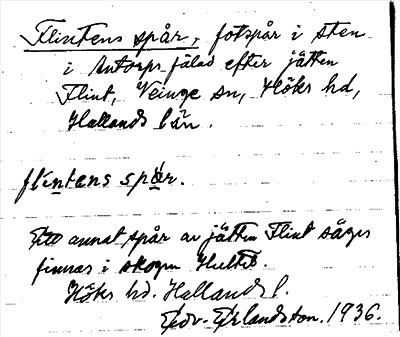 Flintens spår, fotspår i sten
i Antorps fälad efter jätten
Flint, Veinge sn, Höks hd,
Hallands län.
flíntans spår.
Ett annat spår av jätten Flint säges
finnas i skogen Hultet.
Höks hd. Hallands l.
Edv. Erlandsson. 1936.